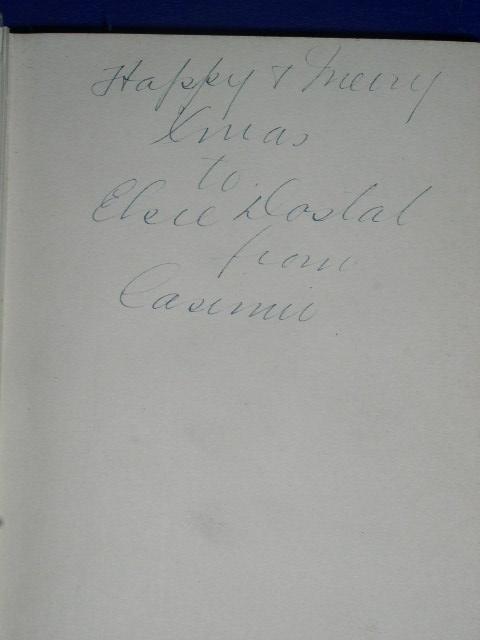 Happy & Merry
Xmas
to
Elsie Dostal
from
Casimir